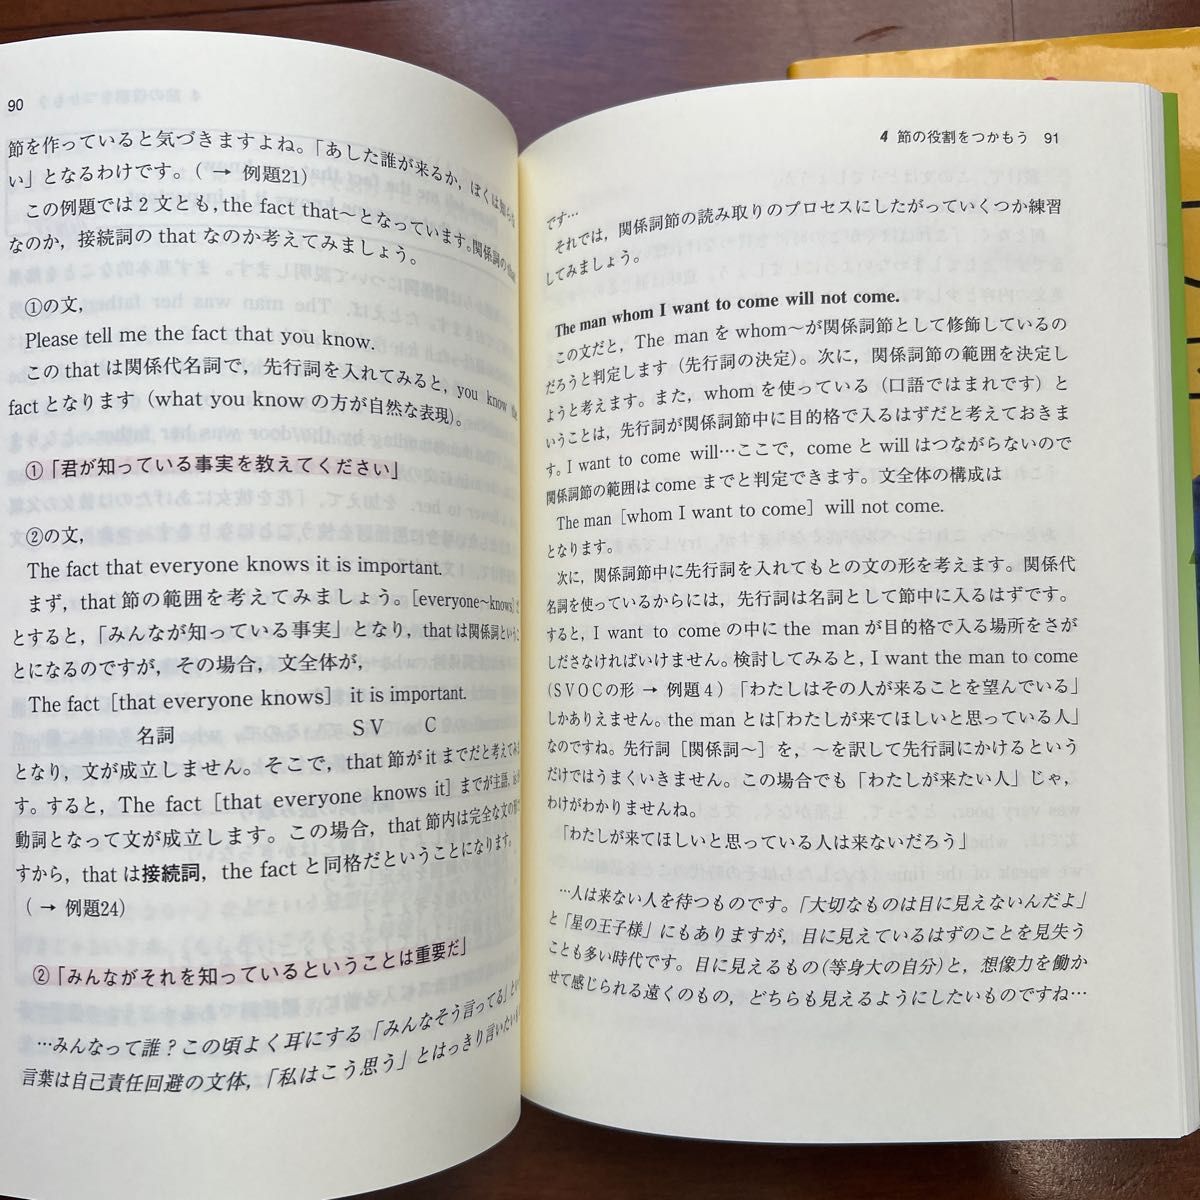 90
節を作っていると気づきますよね。「あした誰が来るか，ぼくは知らな
い」となるわけです。( → 例題21)
この例題では2文とも, the fact that～となっています。関係詞のthat
なのか，接続詞の that なのか考えてみましょう。
①の文,
Please tell me the fact that you know.
この that は関係代名詞で，先行詞を入れてみると, you know the
fact となります（what you know の方が自然な表現)。
①「君が知っている事実を教えてください」
②の文,
The fact that everyone knows it is important.
まず，that 節の範囲を考えてみましょう。[everyone～knows]
とすると，「みんなが知っている事実」となり，that は関係詞というこ
とになるのですが，その場合，文全体が,
The fact [that everyone knows] it is important.
名詞 S V C
となり，文が成立しません。そこで，that 節が it までだと考えてみま
す。すると，The fact [that everyone knows it] までが主語,
動詞となって文が成立します。この場合，that 節内は完全な文の形で
すから，that は接続詞，the fact と同格だということになります。
( → 例題24)
②「みんながそれを知っているということは重要だ」
…みんなって誰？この頃よく耳にする「みんなそう言ってる」とい
言葉は自己責任回避の文体，「私はこう思う」とはっきり言いたい
4 節の役割をつかもう 91
です…
それでは，関係詞節の読み取りのプロセスにしたがっていくつか練習
してみましょう。
The man whom I want to come will not come.
この文だと，The man を whom～が関係詞節として修飾しているの
だろうと判定します（先行詞の決定)。次に，関係詞節の範囲を決定し
ようと考えます。また，whom を使っている（口語ではまれです）と
いうことは，先行詞が関係詞節中に目的格で入るはずだと考えておきま
す。I want to come will…ここで，come と will はつながらないので
関係詞節の範囲は come までと判定できます。文全体の構成は
The man [whom I want to come] will not come.
となります。
次に，関係詞節中に先行詞を入れてもとの文の形を考えます。関係代
名詞を使っているからには，先行詞は名詞として節中に入るはずです。
すると，I want to come の中に the man が目的格で入る場所をさが
しださなければいけません。検討してみると，I want the man to come
(SVOCの形 → 例題4)「わたしはその人が来ることを望んでいる」
しかありえません。the man とは「わたしが来てほしいと思っている人」
なのですね。先行詞［関係詞～］を，～を訳して先行詞にかけるという
だけではうまくいきません。この場合でも「わたしが来たい人」じゃ，
わけがわかりませんね。
「わたしが来てほしいと思っている人は来ないだろう」
…人は来ない人を待つものです。「大切なものは目に見えないんだよ」
と「星の王子様」にもありますが，目に見えているはずのことを見失う
ことも多い時代です。目に見えるもの(等身大の自分)と，想像力を働か
せて感じられる遠くのもの，どちらも見えるようにしたいものですね…